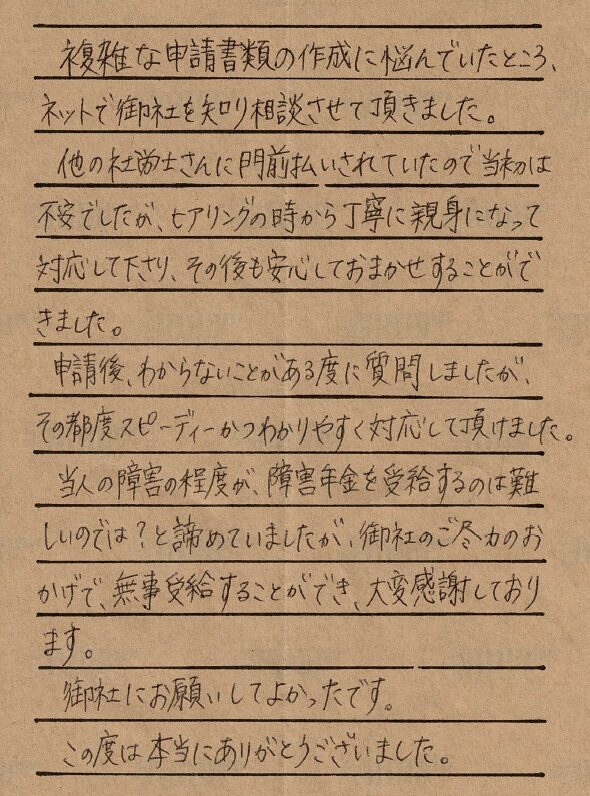 複雑な申請書類の作成に悩んでいたところ、
ネットで御社を知り相談させて頂きました。
他の社労士さんに門前払いされていたので当初は
不安でしたが、ヒアリングの時から丁寧に親身になって
対応して下さり、その後も安心しておまかせすることがで
きました。
申請後、わからないことがある度に質問しましたが、
その都度スピーディーかつわかりやすく対応して頂けました。
当人の障害の程度が、障害年金を受給するのは難
しいのでは?と諦めていましたが、御社のご尽力のお
かげで、無事受給することができ、大変感謝しており
ます。
御社にお願いしてよかったです。
この度は本当にありがとうございました。